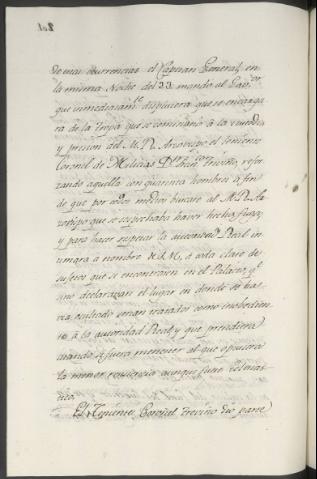 demas ocurrencias el Capitan General en
la misma Noche del 23 mando al Gov.or
que inmediatam.te dispusiera que se encarga
ra de la Tropa que se comisiono à la
y prision del M. R. Arzovispo el teniente
Coronel de Milicias D.n Treviño, refor
zando aquella con quarenta hombres à fin
de que por todos medios buscase al M. R. Ar
zovispo que se sospechaba haver hecho fuga;
y para hacer respetar la autoridad Real in
timara à nombre de S. M. à toda clase de
sujetos que se encontrasen en el Palacio, q.e
sino declarasen el lugar en donde se ha
via ocultado serian tratados como inobedien
tes à la autoridad Real, y que prendiera
quando fuera menester al que opusiera
la menor resistencia aunque fuese Eclesias
tico.
El Teniente Coronel Treviño dio parte